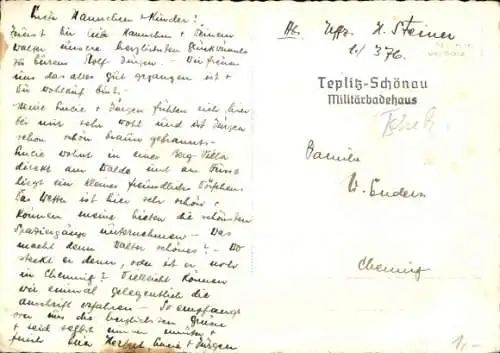 Liebe Hannchen + Kinder!
Zuerst Dir liebe Hannchen + Deinem
Walter unsere herzlichsten Glückwünsche
zu Eurem Rolf Jürgen. – Wir freuen
uns das alles gut gegangen ist +
Du wohlauf bist. –
Meine Lucie + Jürgen fühlen sich hier
bei mir sehr wohl und ist Jürgen
schon schön braun gebrannt. –
Lucie wohnt in einer Villa
direkt am Walde und am Fusse
liegt ein kleines freundliches Dörfchen.
Das Wetter ist hier sehr schön +
können meine beiden die schönsten
Spaziergänge unternehmen. – Was
macht denn Walter schönes? – Wo
steckt er denn, oder ist er noch
in Chemnitz? Vielleicht können
wir einmal gelegentlich die
Anschrift erfahren. – So empfangt
von uns die herzlichsten Grüsse
+ seid selbst
Euer Herbert, Lucie + Jürgen
Abs. Uffz. H. Steiner
Teplitz-Schönau
Militärbadehaus
Familie
W. Enders
Chemnitz
1,-